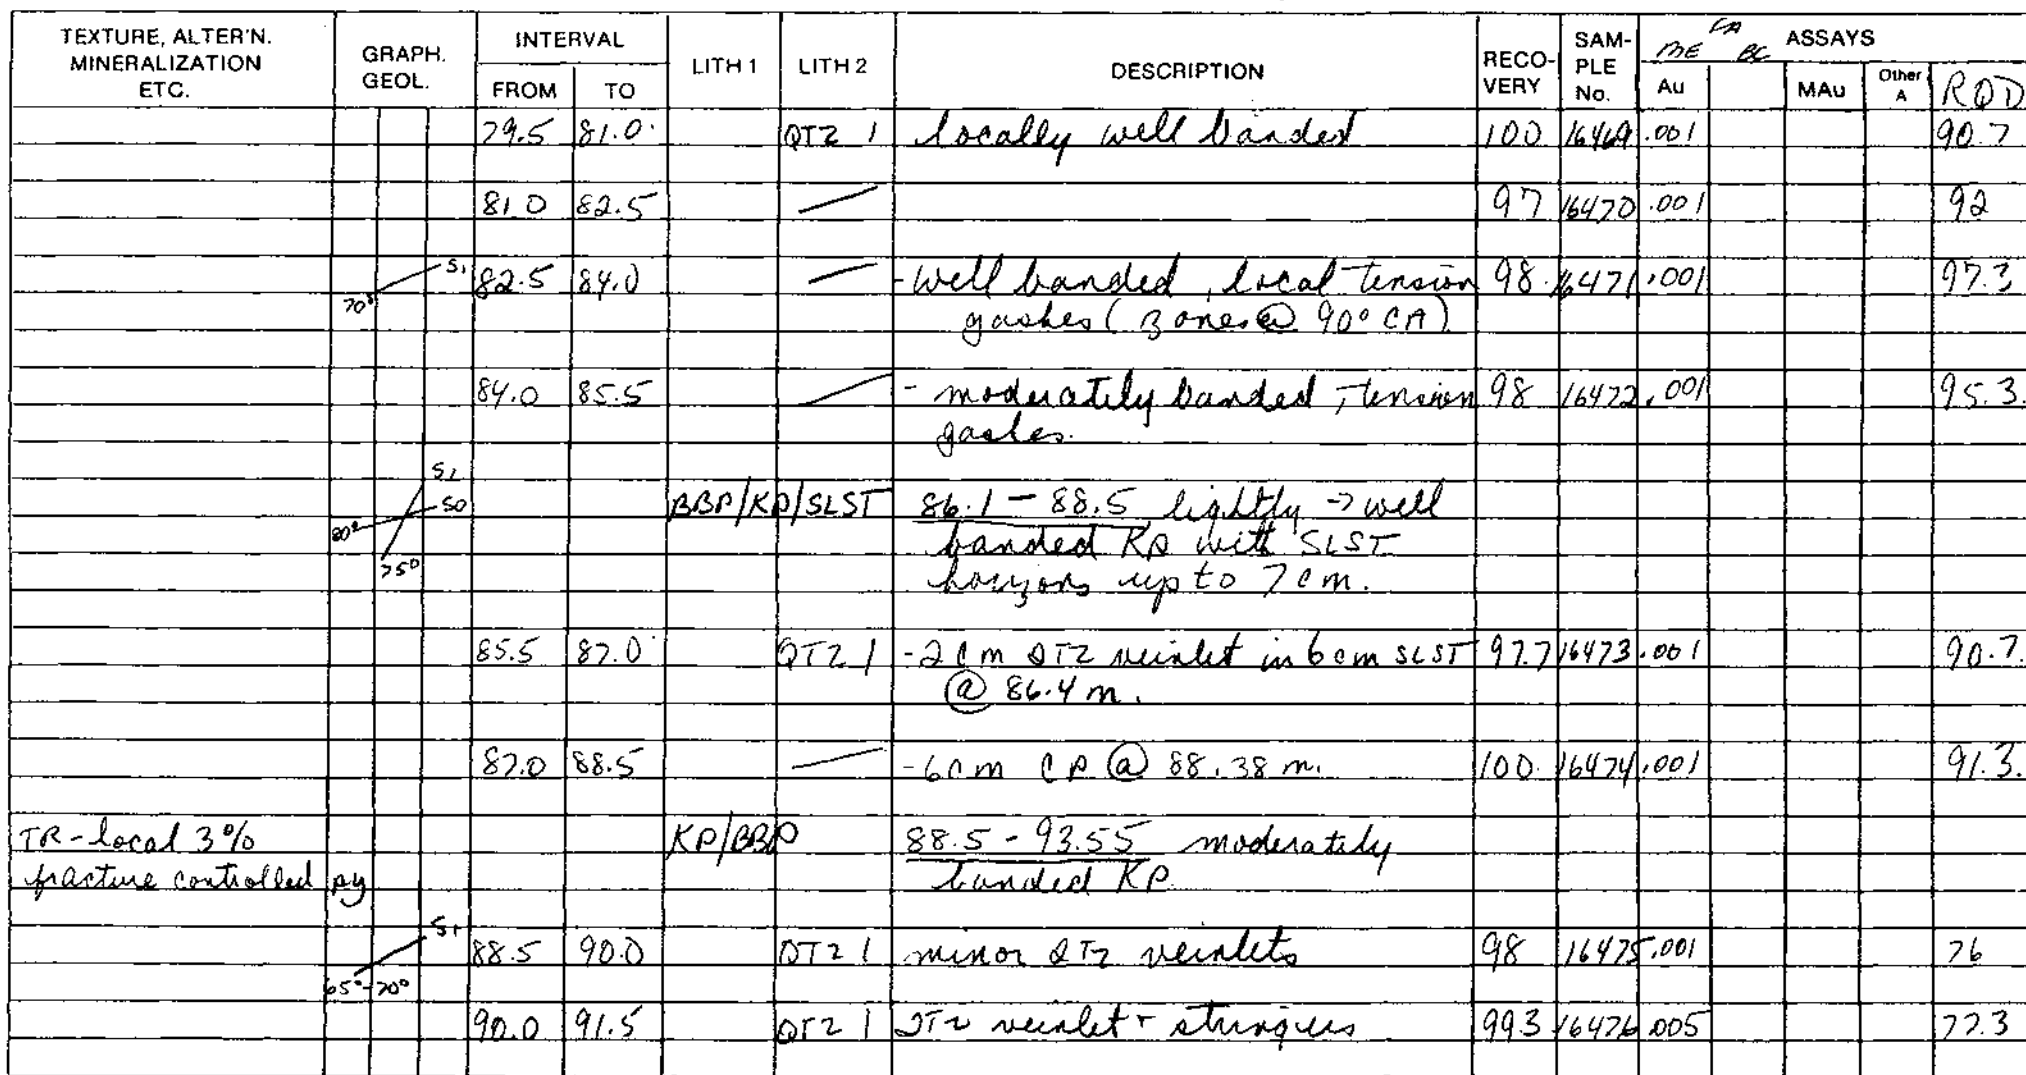 TEXTURE, ALTER'N. MINERALIZATION ETC. GRAPH. GEOL. INTERVAL FROM TO LITH 1 LITH 2 DESCRIPTION RECO-VERY SAM-PLE No. ASSAYS ME FA BC Au MAu Other A RQD
79.5 81.0 QTZ 1 locally well banded 100 16469 .001 90.7
81.0 82.5 97 16470 .001 92
S1 70° 82.5 84.0 - well banded, local tension 98 16471 .001 97.3
gashes (zones @ 90° CA)
84.0 85.5 - moderately banded, tension 98 16472 .001 95.3
gashes.
S1
S0 80° 75° BBP/KP/SLST 86.1 - 88.5 lightly -> well
banded KP with SLST
horizons up to 7cm.
85.5 87.0 QTZ 1 - 2cm QTZ veinlet in 6cm SLST 97.7 16473 .001 90.7
@ 86.4 m.
87.0 88.5 - 6cm CP @ 88.38 m. 100 16474 .001 91.3
TR - local 3% KP/BBP 88.5 - 93.55 moderately
fracture controlled py banded KP
S1 65°-70° 88.5 90.0 QTZ 1 minor QTZ veinlets 98 16475 .001 76
90.0 91.5 QTZ 1 QTZ veinlet + stringers 99.3 16476 .005 77.3